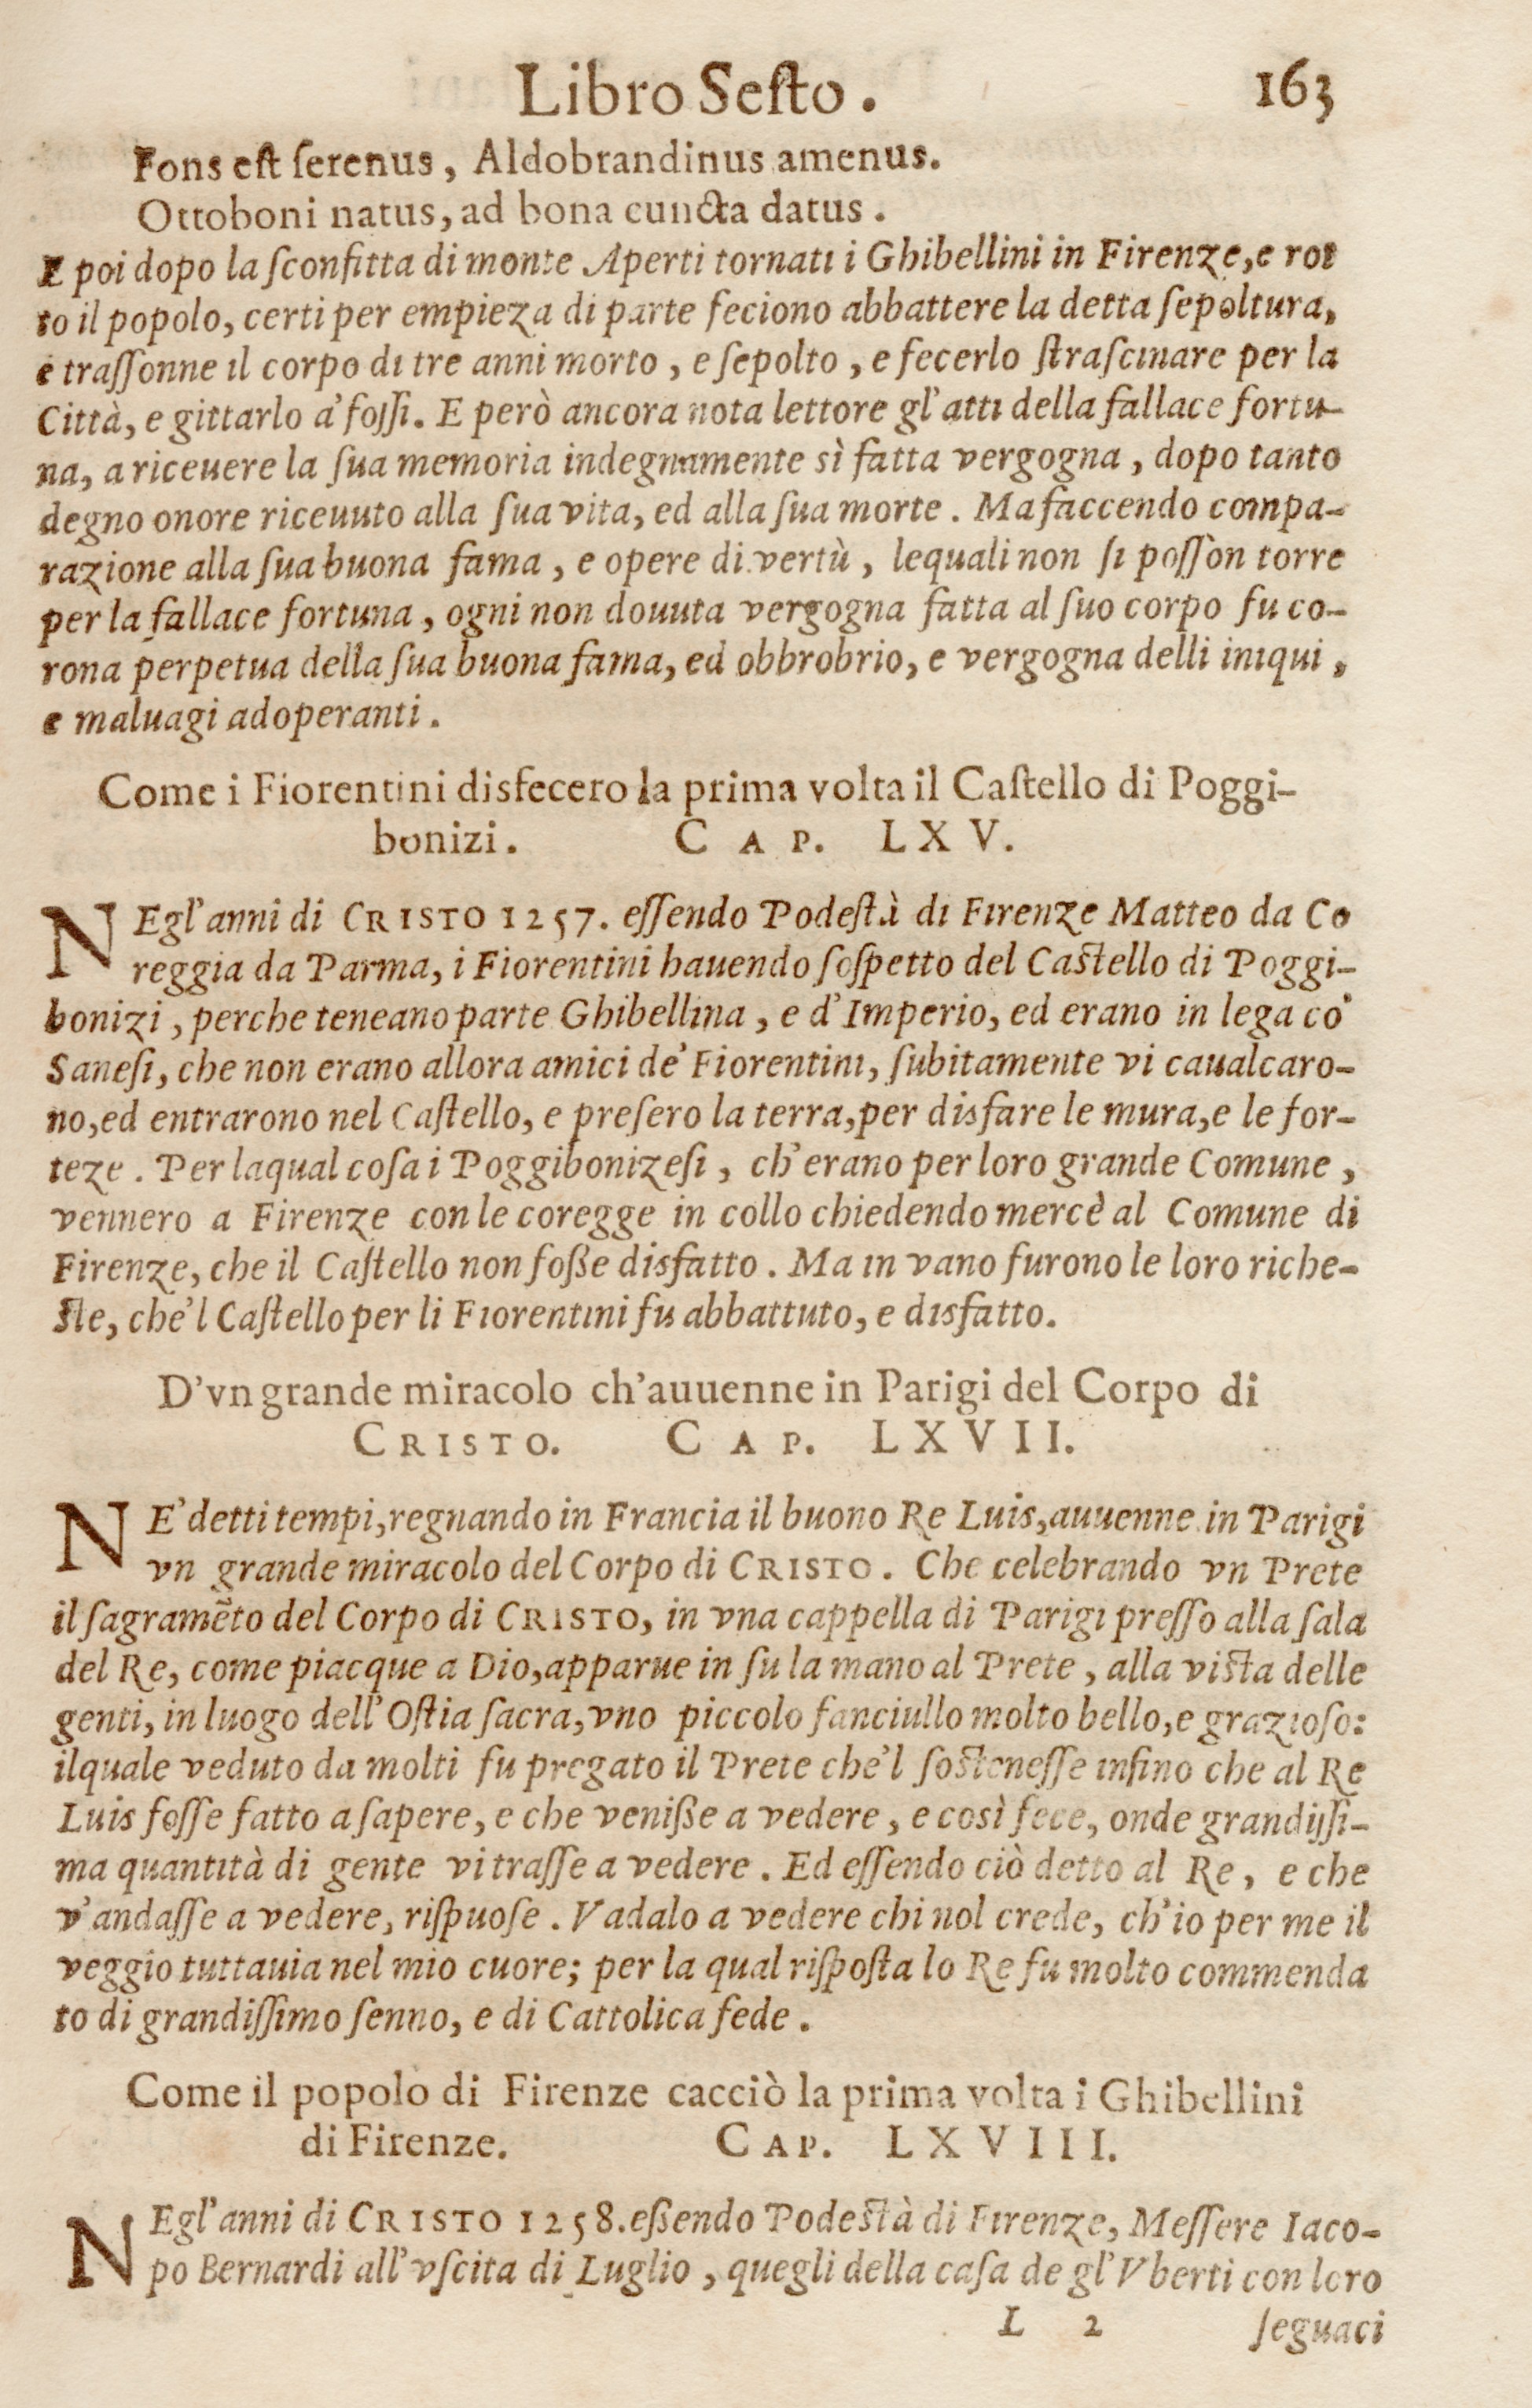 Libro Sesto. 163
Fons est serenus, Aldobrandinus amenus.
Ottoboni natus, ad bona cuncta datus.
E poi dopo la sconfitta di monte Aperti tornati i Ghibellini in Firenze, e rot
to il popolo, certi per empieza di parte feciono abbattere la detta sepoltura,
e trassonne il corpo di tre anni morto, e sepolto, e fecerlo strascinare per la
Città, e gittarlo a' fossi. E però ancora nota lettore gl'atti della fallace fortu-
na, a riceuere la sua memoria indegnamente sì fatta vergogna, dopo tanto
degno onore riceuuto alla sua vita, ed alla sua morte. Ma faccendo compa-
razione alla sua buona fama, e opere di vertù, lequali non si posson torre
per la fallace fortuna, ogni non douuta vergogna fatta al suo corpo fu co-
rona perpetua della sua buona fama, ed obbrobrio, e vergogna delli iniqui,
e maluagi adoperanti.
Come i Fiorentini disfecero la prima volta il Castello di Poggi-
bonizi. CAP. LXV.
NEgl'anni di CRISTO 1257. essendo Podestà di Firenze Matteo da Co
reggia da Parma, i Fiorentini hauendo sospetto del Castello di Poggi-
bonizi, perche teneano parte Ghibellina, e d'Imperio, ed erano in lega co'
Sanesi, che non erano allora amici de' Fiorentini, subitamente vi caualcaro-
no, ed entrarono nel Castello, e presero la terra, per disfare le mura, e le for-
teze. Per laqual cosa i Poggibonizesi, ch'erano per loro grande Comune,
vennero a Firenze con le coregge in collo chiedendo mercè al Comune di
Firenze, che il Castello non foße disfatto. Ma in vano furono le loro riche-
ste, che'l Castello per li Fiorentini fu abbattuto, e disfatto.
D'vn grande miracolo ch'auuenne in Parigi del Corpo di
CRISTO. CAP. LXVII.
NE' detti tempi, regnando in Francia il buono Re Luis, auuenne in Parigi
vn grande miracolo del Corpo di CRISTO. Che celebrando vn Prete
il sagramẽto del Corpo di CRISTO, in vna cappella di Parigi presso alla sala
del Re, come piacque a Dio, apparue in su la mano al Prete, alla vista delle
genti, in luogo dell'Ostia sacra, vno piccolo fanciullo molto bello, e grazioso:
ilquale veduto da molti fu pregato il Prete che'l sostenesse insino che al Re
Luis fosse fatto a sapere, e che veniße a vedere, e così fece, onde grandissi-
ma quantità di gente vi trasse a vedere. Ed essendo ciò detto al Re, e che
v'andasse a vedere, rispuose. Vadalo a vedere chi nol crede, ch'io per me il
veggio tuttauia nel mio cuore; per la qual risposta lo Re fu molto commenda
to di grandissimo senno, e di Cattolica fede.
Come il popolo di Firenze cacciò la prima volta i Ghibellini
di Firenze. CAP. LXVIII.
NEgl'anni di CRISTO 1258. eßendo Podestà di Firenze, Messere Iaco-
po Bernardi all'vscita di Luglio, quegli della casa de gl'Vberti con loro
L 2 seguaci